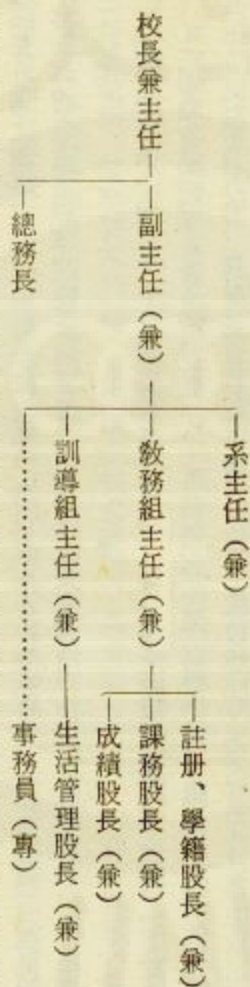 校長兼主任
副主任（兼）
總務長
系主任（兼）
教務組主任（兼）
訓導組主任（兼）
註册、學籍股長（兼）
課務股長（兼）
成績股長（兼）
生活管理股長（兼）
事務員（專）